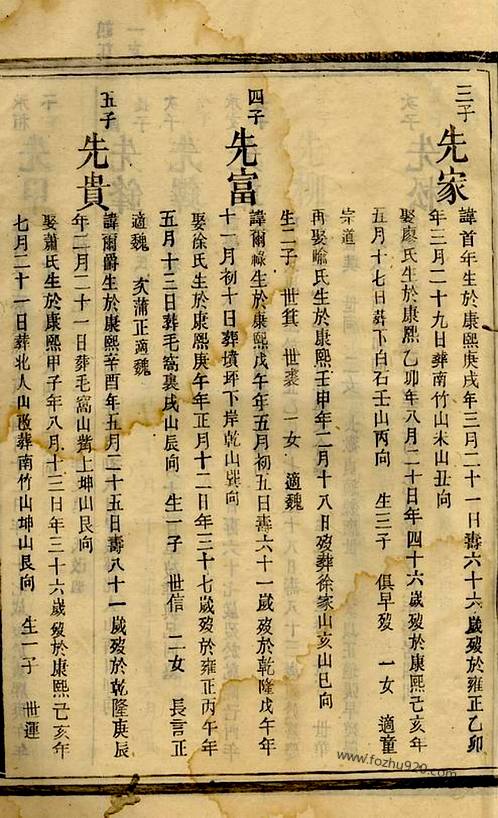 三子 先家 諱首年生於康熙庚戌年三月二十一日壽六十六歲歿於雍正乙卯
年三月二十九日葬南竹山未山丑向
娶廖氏生於康熙乙卯年八月二十日年四十六歲歿於康熙己亥年
五月十七日葬下白石壬山丙向 生三子 俱早歿 一女 適童
宗道
再娶喻氏生於康熙壬申年二月十八日歿葬徐家山亥山巳向
生二子 世箕 世裘 一女 適魏
四子 先富 諱爾祿生於康熙戊午年五月初五日壽六十一歲歿於乾隆戊午年
十一月初十日葬墳坪下岸乾山巽向
娶徐氏生於康熙庚午年正月十二日年三十七歲歿於雍正丙午年
五月十三日葬毛窩裏戌山辰向 生一子 世信 二女 長言正
適魏 次蒲正適魏
五子 先貴 諱爾爵生於康熙辛酉年五月二十五日壽八十一歲歿於乾隆庚辰
年二月二十一日葬毛窩山嘴上坤山艮向
娶蕭氏生於康熙甲子年八月十三日年三十六歲歿於康熙己亥年
七月二十一日葬北人山改葬南竹山坤山艮向 生一子 世運
www.fozhu920.com